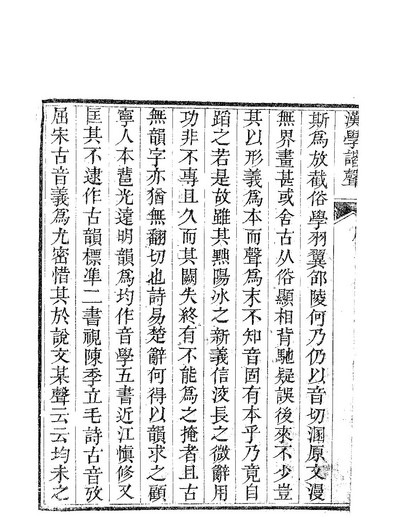 漢學諧聲
斯為放截俗學羽翼邵陵何乃仍以音切溷原文漫
無界畫甚或舍古从俗顯相背馳疑誤後來不少豈
其以形義為本而聲為末不知音固有本乎乃竟自
蹈之若是故雖其黜陽冰之新義信洨長之微辭用
功非不專且久而其闕失終有不能為之掩者且古
無韻字亦猶無翻切也詩易楚辭何得以韻求之顧
寧人本光遠明韻為均作音學五書近江慎修又
匡其不逮作古韻標準二書視陳季立毛詩古音攷
屈宋古音義為尤密惜其於說文某聲云云均未之